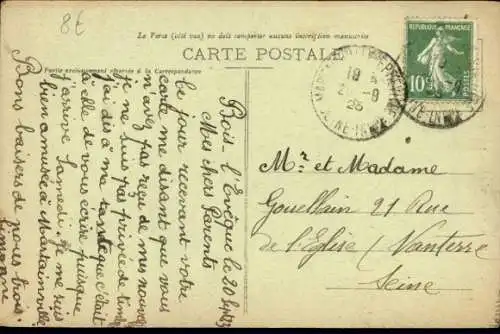 8€
Le Verso (côté vue) ne doit comporter aucune inscription manuscrite
CARTE POSTALE
Partie exclusivement réservée à la Correspondance
RÉPUBLIQUE FRANÇAISE
10c
POSTES
19
25
Bois-l'Evêque le 20 Sept
Mes chers Parents
Ce jour recevant votre
carte me disant que vous
n'avez pas reçu de mes nouvelles
je ne suis pas privée de timbre
j'ai dis à ma tante que c'était
à elle de vous écrire puisque
j'arrive Samedi, je me suis
bien amusée à Martainville
Bons baisers de nous trois
Simonne
Mr et Madame
Gouellain 21 Rue
de l'Eglise / Nanterre
Seine